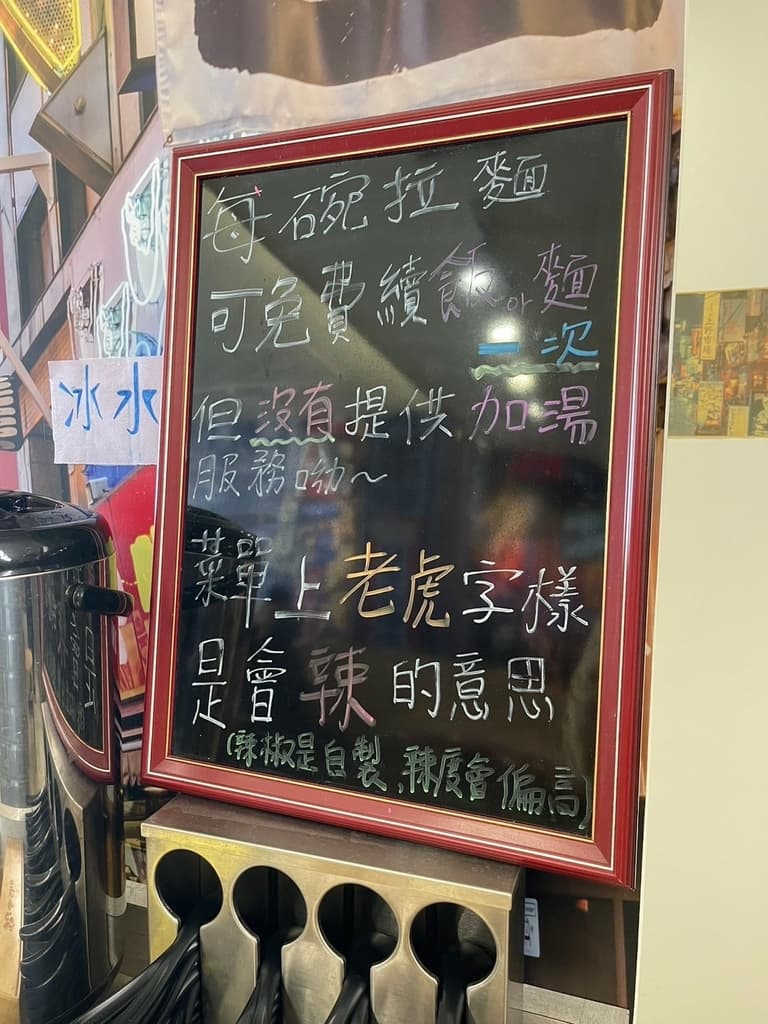 冰水
每碗拉麵
可免費續飯or麵
一次
但沒有提供加湯
服務呦~
菜單上老虎字樣
是會辣的意思
(辣椒是自製,辣度會偏高)